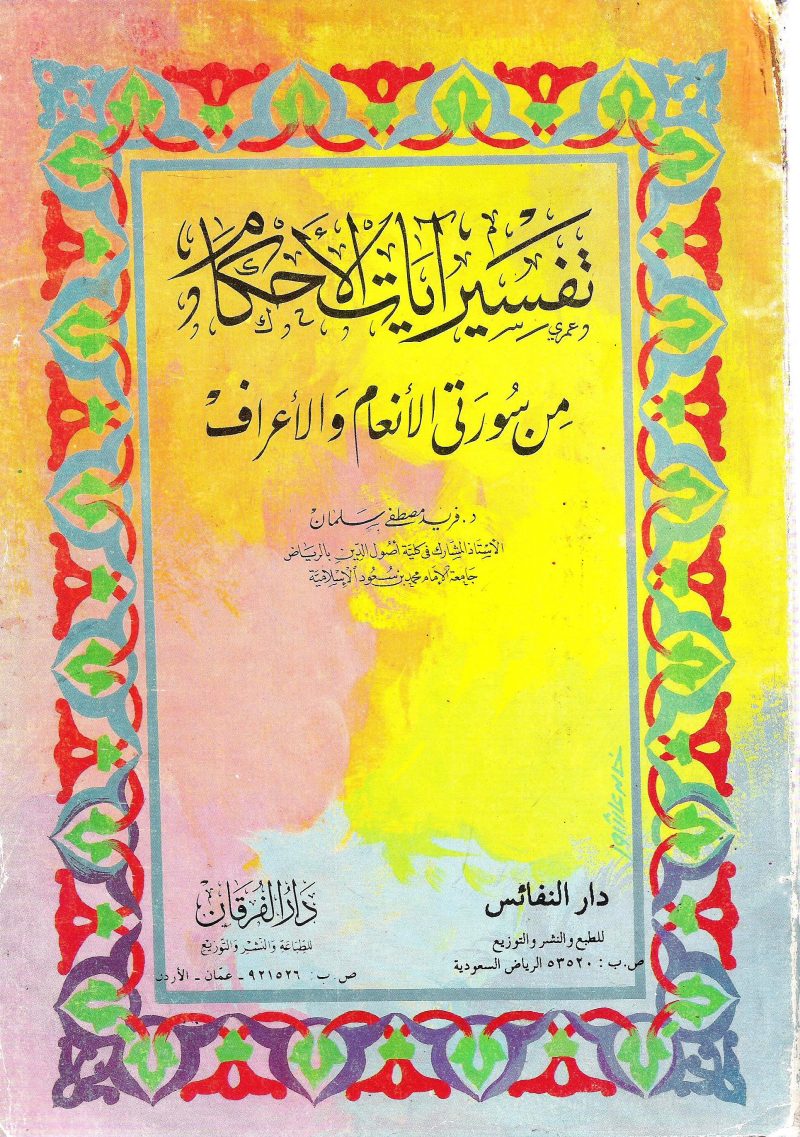 تفسير آيات الأحكام
من سورتى الأنعام والأعراف
د. فريد مصطفى سلمان
الأستاذ المشارك فى كلية أصول الدين بالرياض
جامعة الإمام محمد بن سعود الإسلامية
دار النفائس
للطبع والنشر والتوزيع
ص.ب : ٥٣٥٢٠ الرياض السعودية
دار الفرقان
للطباعة والنشر والتوزيع
ص ب : ٩٢١٥٢٦ - عمّان - الأردن